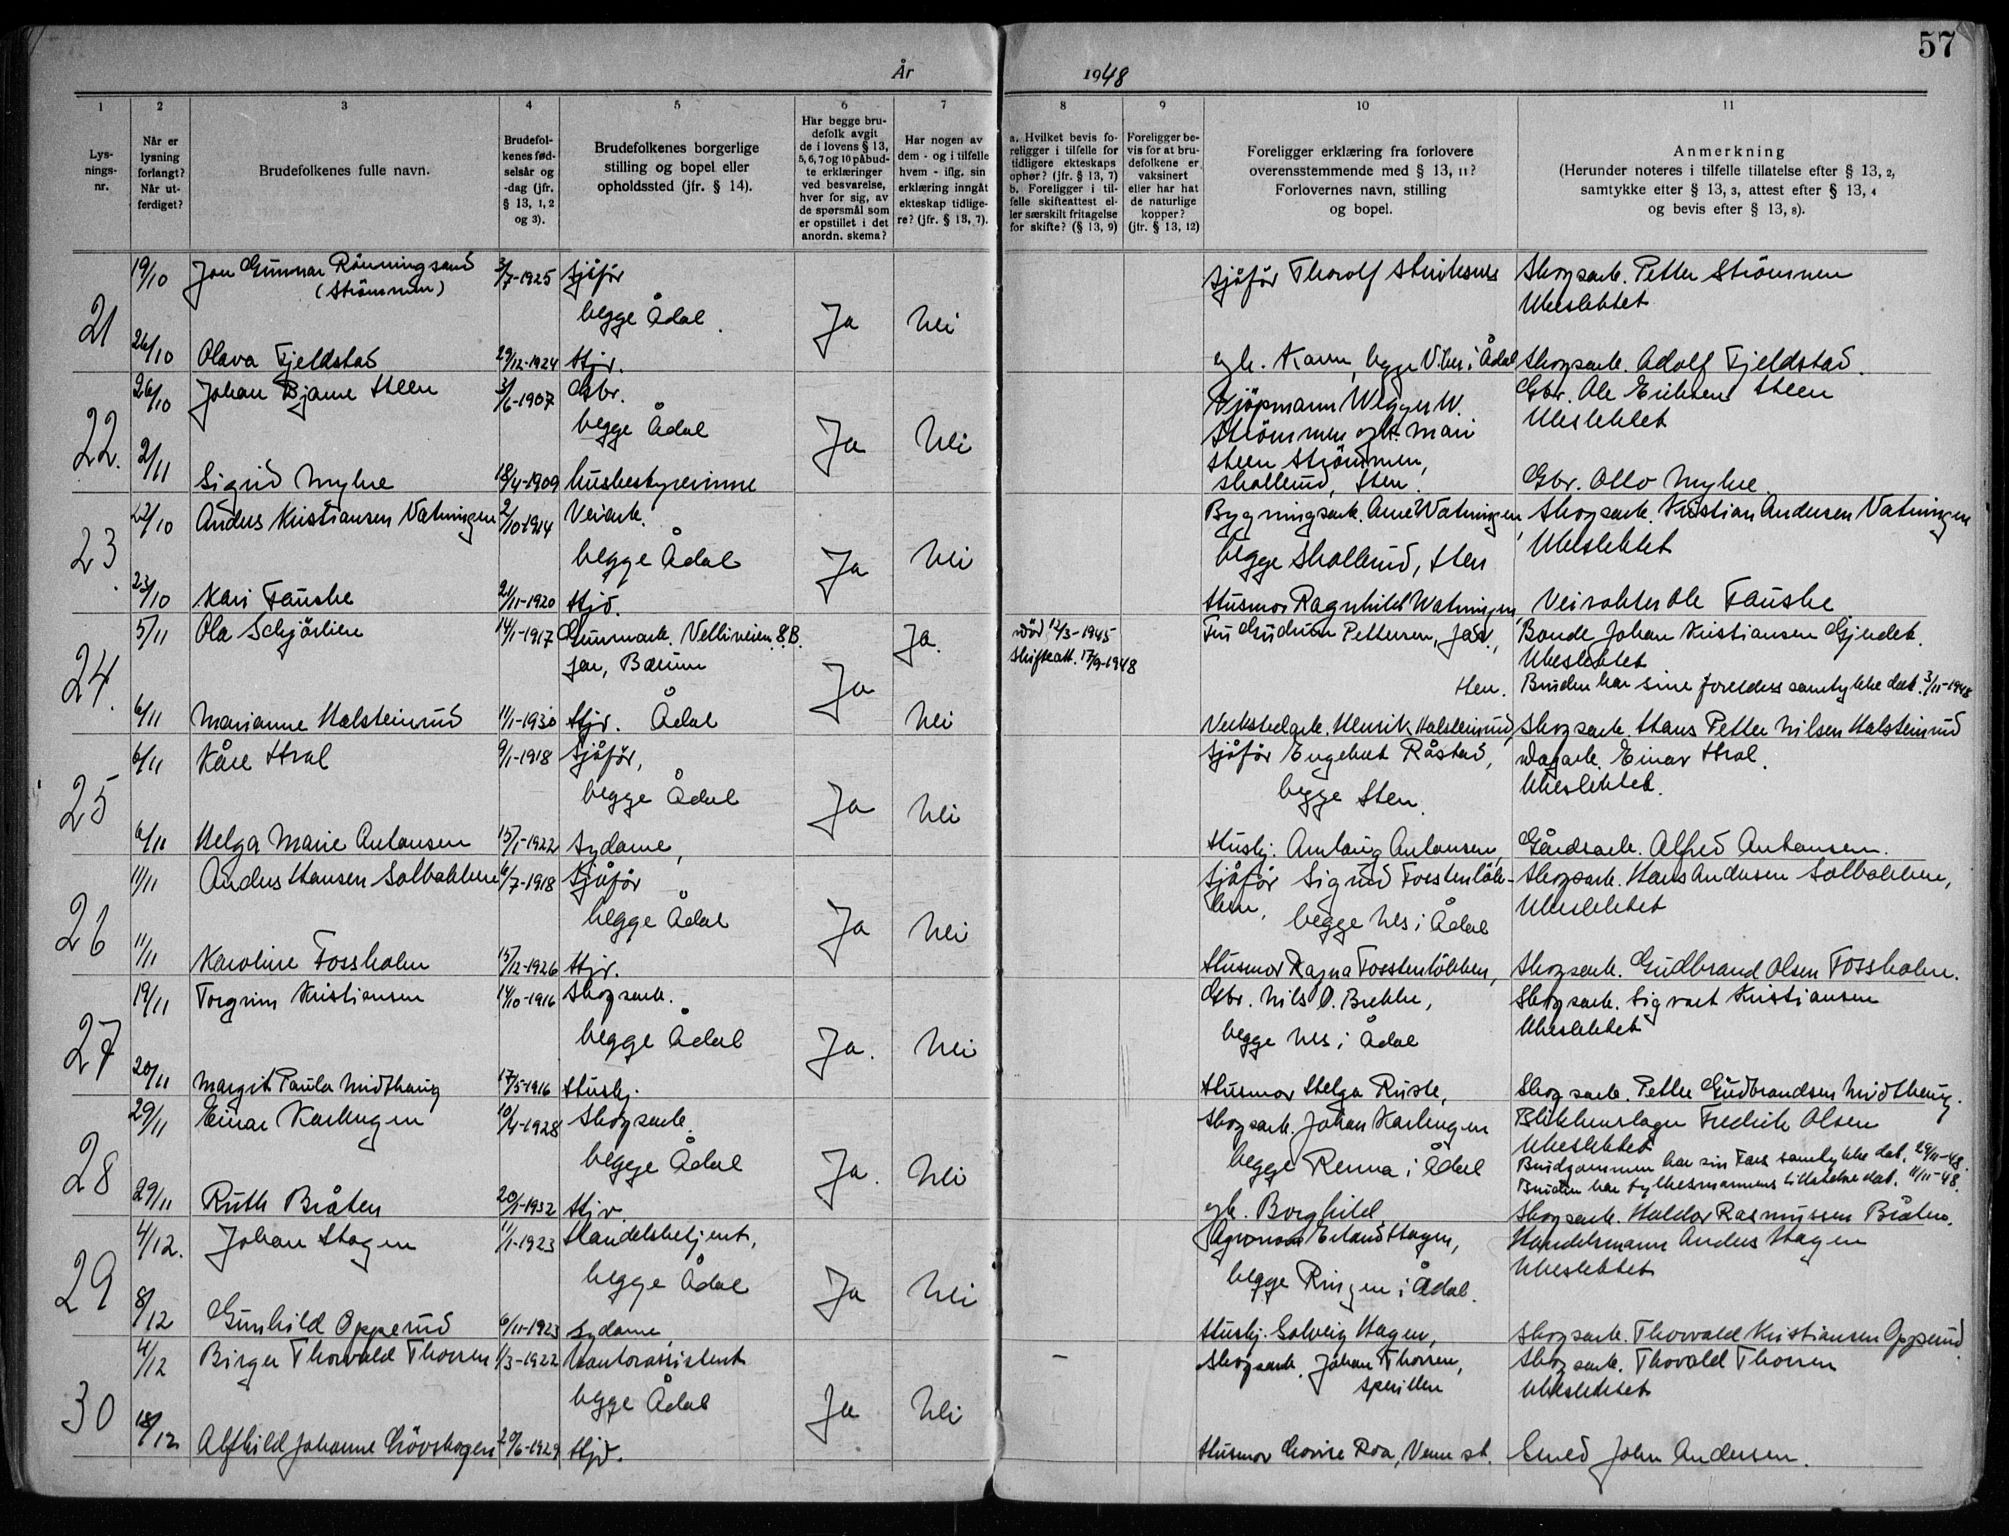 57
År
1948
1
2
3
4
5
6
7
8
9
10
11
Lysningsnr.
Når er lysning forlangt? Når utferdiget?
Brudefolkenes fulle navn.
Brudefolkenes fødselsår og -dag (jfr. § 13, 1, 2 og 3).
Brudefolkenes borgerlige stilling og bopel eller opholdssted (jfr. § 14).
Har begge brudefolk avgit de i lovens § 13, 5, 6, 7 og 10 påbudte erklæringer ved besvarelse, hver for sig, av de spørsmål som er opstillet i det anordn. skema?
Har nogen av dem - og i tilfelle hvem - iflg. sin erklæring inngåt ekteskap tidligere? (jfr. § 13, 7).
a. Hvilket bevis foreligger i tilfelle for tidligere ekteskaps ophør? (jfr. § 13, 7) b. Foreligger i tilfelle skifteattest eller særskilt fritagelse for skifte? (§ 13, 9)
Foreligger bevis for at brudefolkene er vaksinert eller har hat de naturlige kopper? (jfr. § 13, 12)
Foreligger erklæring fra forlovere overensstemmende med § 13, 11? Forlovernes navn, stilling og bopel.
Anmerkning (Herunder noteres i tilfelle tillatelse efter § 13, 2, samtykke efter § 13, 3, attest efter § 13, 4 og bevis efter § 13, 8).
21
19/10 Jon Gunnar Rønningsand 3/7-1925 Sjåfør
(Strømmen)
begge Ådal Ja Nei
26/10 Olava Fjeldstad 29/12-1924 Hjv.
Sjåfør Thorolf
Skogsarb. Petter Strømmen
Ubeslektet
Skogsarb. Adolf Fjeldstad.
22.
26/10 Johan Bjarne Steen 3/6-1907 Gbr.
begge Ådal Ja Nei
2/11 Sigrid Myhre 18/4-1909 husbestyrerinne
Kjøpmann W.
Strømmen og h. Mari
Steen Strømmen,
Skollerud, Hen.
Gbr. Ole Eriksen Steen
Ubeslektet
Gbr. Otto Myhre
23
22/10 Anders Kristiansen Vatningen 2/10-1914 Veiarb.
begge Ådal Ja Nei
23/10 Kari Fauske 21/11-1920 Hjv.
Bygningsarb. Arne Vatningen,
begge Skollerud, Hen
Husmor Ragnhild Watningen,
Skogsarb. Kristian Andersen Vatningen
Ubeslektet
Veivokter Ole Fauske
24.
5/11 Ola Schjørlien 14/1-1917 Gummarb. Velliveien 8.B.
Jar, Bærum Ja Ja.
6/11 Marianne Halsteinrud 11/1-1930 Hjv. Ådal Nei
Død 12/3-1945
Skifteatt. 17/9-1948
Fru Gudrun Pettersen, Jar,
Hen.
Verkstedarb. Henrik Halsteinrud,
Bonde Johan Kristiansen
Ubeslektet
Bruden har sine foreldres samtykke dat. 3/11-1948
Skogsarb. Hans Petter Nilsen Halsteinrud
25
6/11 Kåre Hval 9/1-1918 Sjåfør,
begge Ådal Ja Nei
6/11 Helga Marie Antonsen 15/1-1922 Sydame,
Sjåfør Engebret Råstad,
begge Hen.
Hushj. Antonsen,
Dagarb. Einar Hval.
Ubeslektet.
Gårdsarb. Alfred Antonsen.
26
11/11 Anders Hansen Solbakken 6/7-1918 Sjåfør
begge Ådal Ja Nei
11/11 Karoline Fossholm 15/12-1926 Hjv.
Sjåfør Sigurd
begge Nes i Ådal
Husmor Ragna
Skogsarb. Hans Andersen Solbakken,
Ubeslektet
Skogsarb. Gudbrand Olsen Fossholm.
27
19/11 Torgrim Kristiansen 14/10-1916 Skogsarb.
begge Ådal Ja. Nei
20/11 Margit Paula Midthaug 17/5-1916 Hushj.
Gbr. Nils O. Brekke,
begge Nes i Ådal
Husmor Helga Ruste,
Skogsarb. Sigvart Kristiansen
Ubeslektet
Skogsarb. Petter Gudbrandsen Midthaug.
28
29/11 Einar Karlengen 10/4-1928 Skogsarb.
begge Ådal Ja. Nei
29/11 Ruth Bråten 20/1-1932 Hjv.
Skogsarb. Johan Karlengen
begge Renna i Ådal
og h. Borghild
Blikkenslager Fredrik Olsen
Ubeslektet
Brudgommen har sin Fars samtykke dat. 29/11-48.
Bruden har fylkesmannens tillatelse dat. 11/11-48.
Skogsarb. Haldor Rasmussen Bråten.
29
4/12. Johan Hagen 11/1-1923 Handelsbetjent,
begge Ådal Ja Nei
8/12 Gunhild Opperud 6/11-1923 Sydame,
Agronom Erland Hagen,
begge Ringen i Ådal.
Hushj. Solveig Hagen,
Handelsmann Anders Hagen
Ubeslektet
Skogsarb. Thorvald Kristiansen Opperud
30
4/12 Birger Thorvald Thoresen 1/3-1922 Kontorassistent
begge Ådal Ja Nei
18/12 Alfhild Johanne Løvskogen 20/6-1929 Hjv.
–
Skogsarb. Johan Thoresen,
Sperillen
Husmor Lovise Roa, Veme st.
Skogsarb. Thovald Thoresen
Ubeslektet
Smed John Andersen.